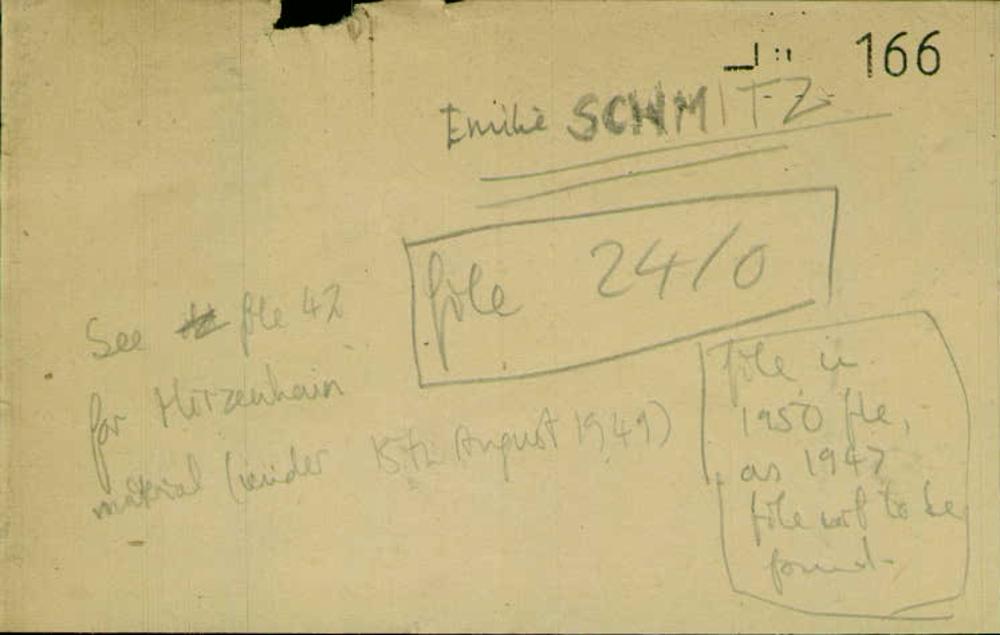 166
Emilie SCHMITZ
file 24/0
See file 42
for Hirzenhain
material (under 15th August 1949)
file in
1950 file,
as 1947
file not to be
found.